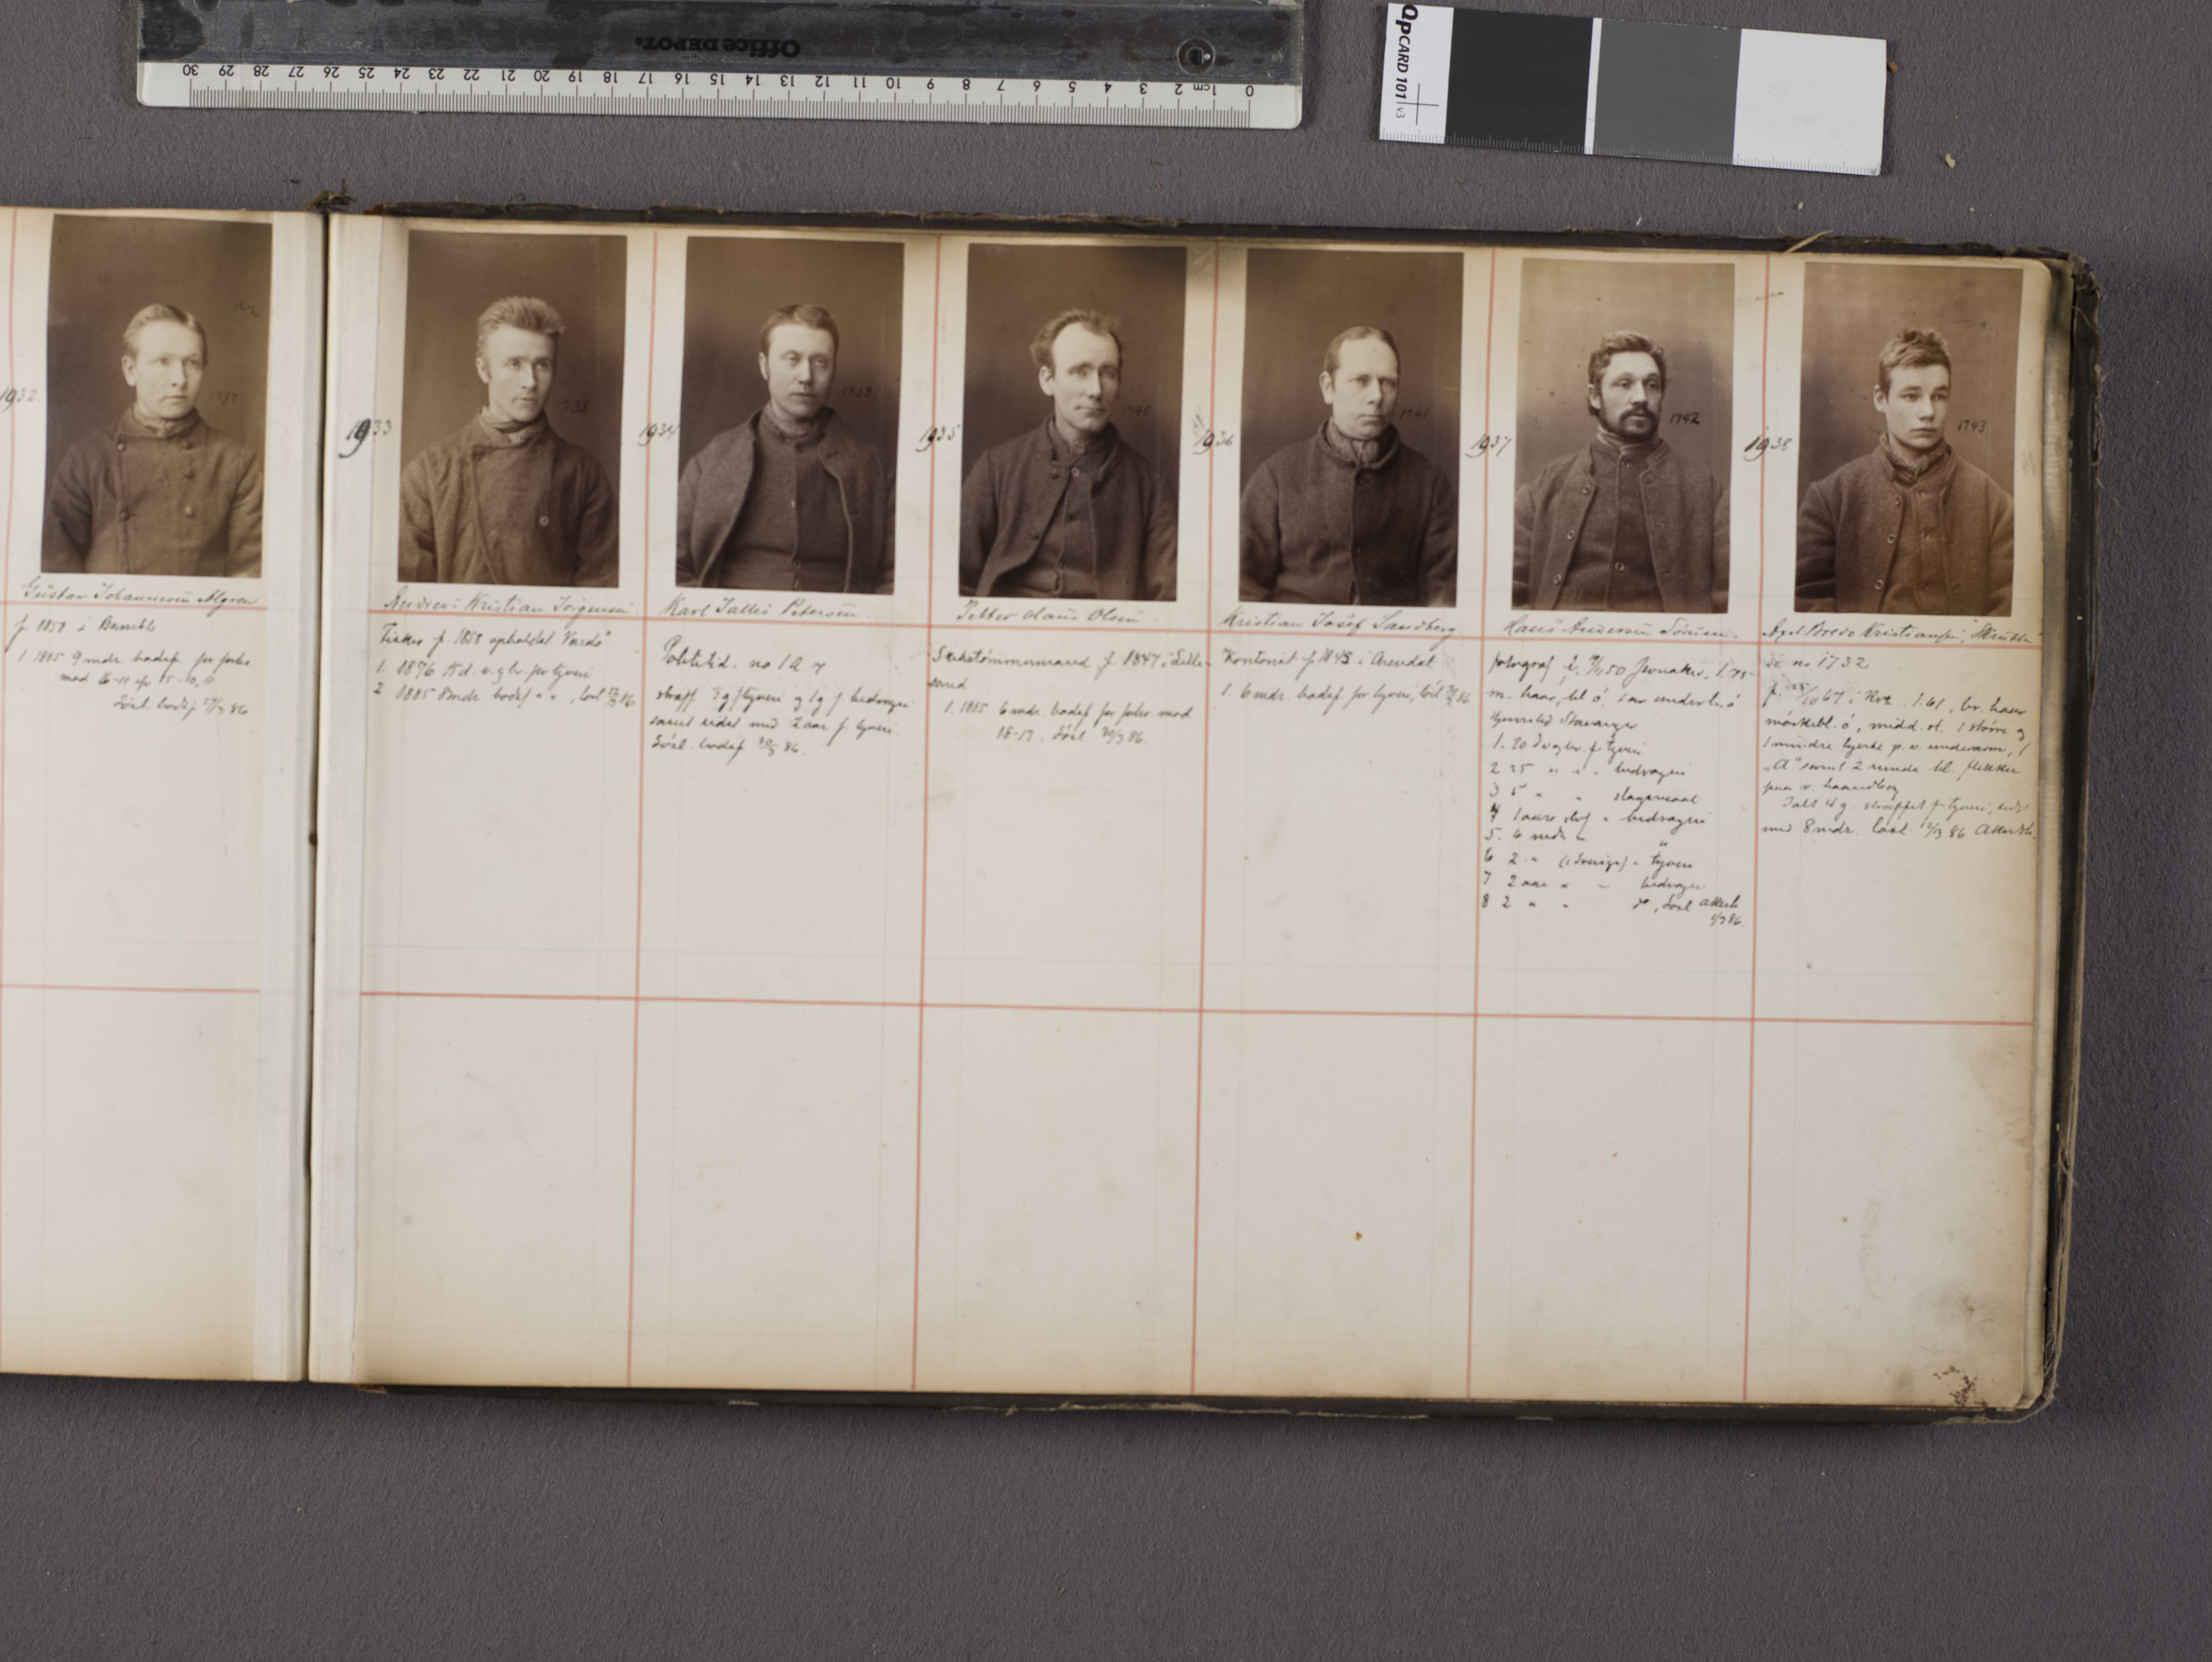 Office DEPOT.
30 29 28 27 26 25 24 23 22 21 20 19 18 17 16 15 14 13 12 11 10 9 8 7 6 5 4 3 2 1cm 0
QPCARD 101 v3
1932
1737
Gustav Johannesen Algren
f. 1858 i Bamble
1. 1885 9 mdr. bodsf for forbr.
mod
Løsl. bodsf 27/3 86
1933
1738
Andreas Kristian Jörgensen
Fisker f. 1858 opholdst. Vardö
1. 1876 15 d. v. g br. for tyveri
2 1885 8 mdr bodsf " " , løsl 86
1934
1739
Karl Julius Petersen.
Politi no 1 a
straff 3 g f tyveri og 1 g f bedrageri
samt sidst med 2 aar f tyveri.
Løsl. bodsf 30/3 86.
1935
1740
Petter Claus Olsen
f. 1847 i Lille-
sand
1. 1885 6 mdr. bodsf for forbr. mod
18-13. Løsl 30/3 86.
1936
1741
Kristian Josef Sandberg.
Kontorist f. 1843 i Arendal
1. 6 mdr. bodsf for tyveri, løsl 86
1937
1742
Hans Andersen Sörum.
fotograf f. 50 Jevnaker, 1.75
m. haar, bl ö. 1 ar under h. ö
hjemsted Stavanger
1. 20 d v g br. f tyveri
2 25 " " " bedrageri
3 5 " " slagsmaal
4 1 aars straf " bedrageri
5. 6 mdr " "
6 2 " (i Sverige) " tyveri
7 2 aar " " bedrager.
8 2 " " do, Løsl Akersh
/3 86.
1938
1743
Axel Bredo Kristiansen, "Struten"
se no 1732
f. /10 67 i Kra. 1.61, br. haar
mörkebl. ö, midd. st. 1 större og
1 mindre hjerte p. v. underarm, 1
"A" samt 2 runde bl. flekker
paa v. haandled
Ialt 4 g. straffet f tyveri, sidst
med 8 mdr. løsl 12/3 86 Akersh.